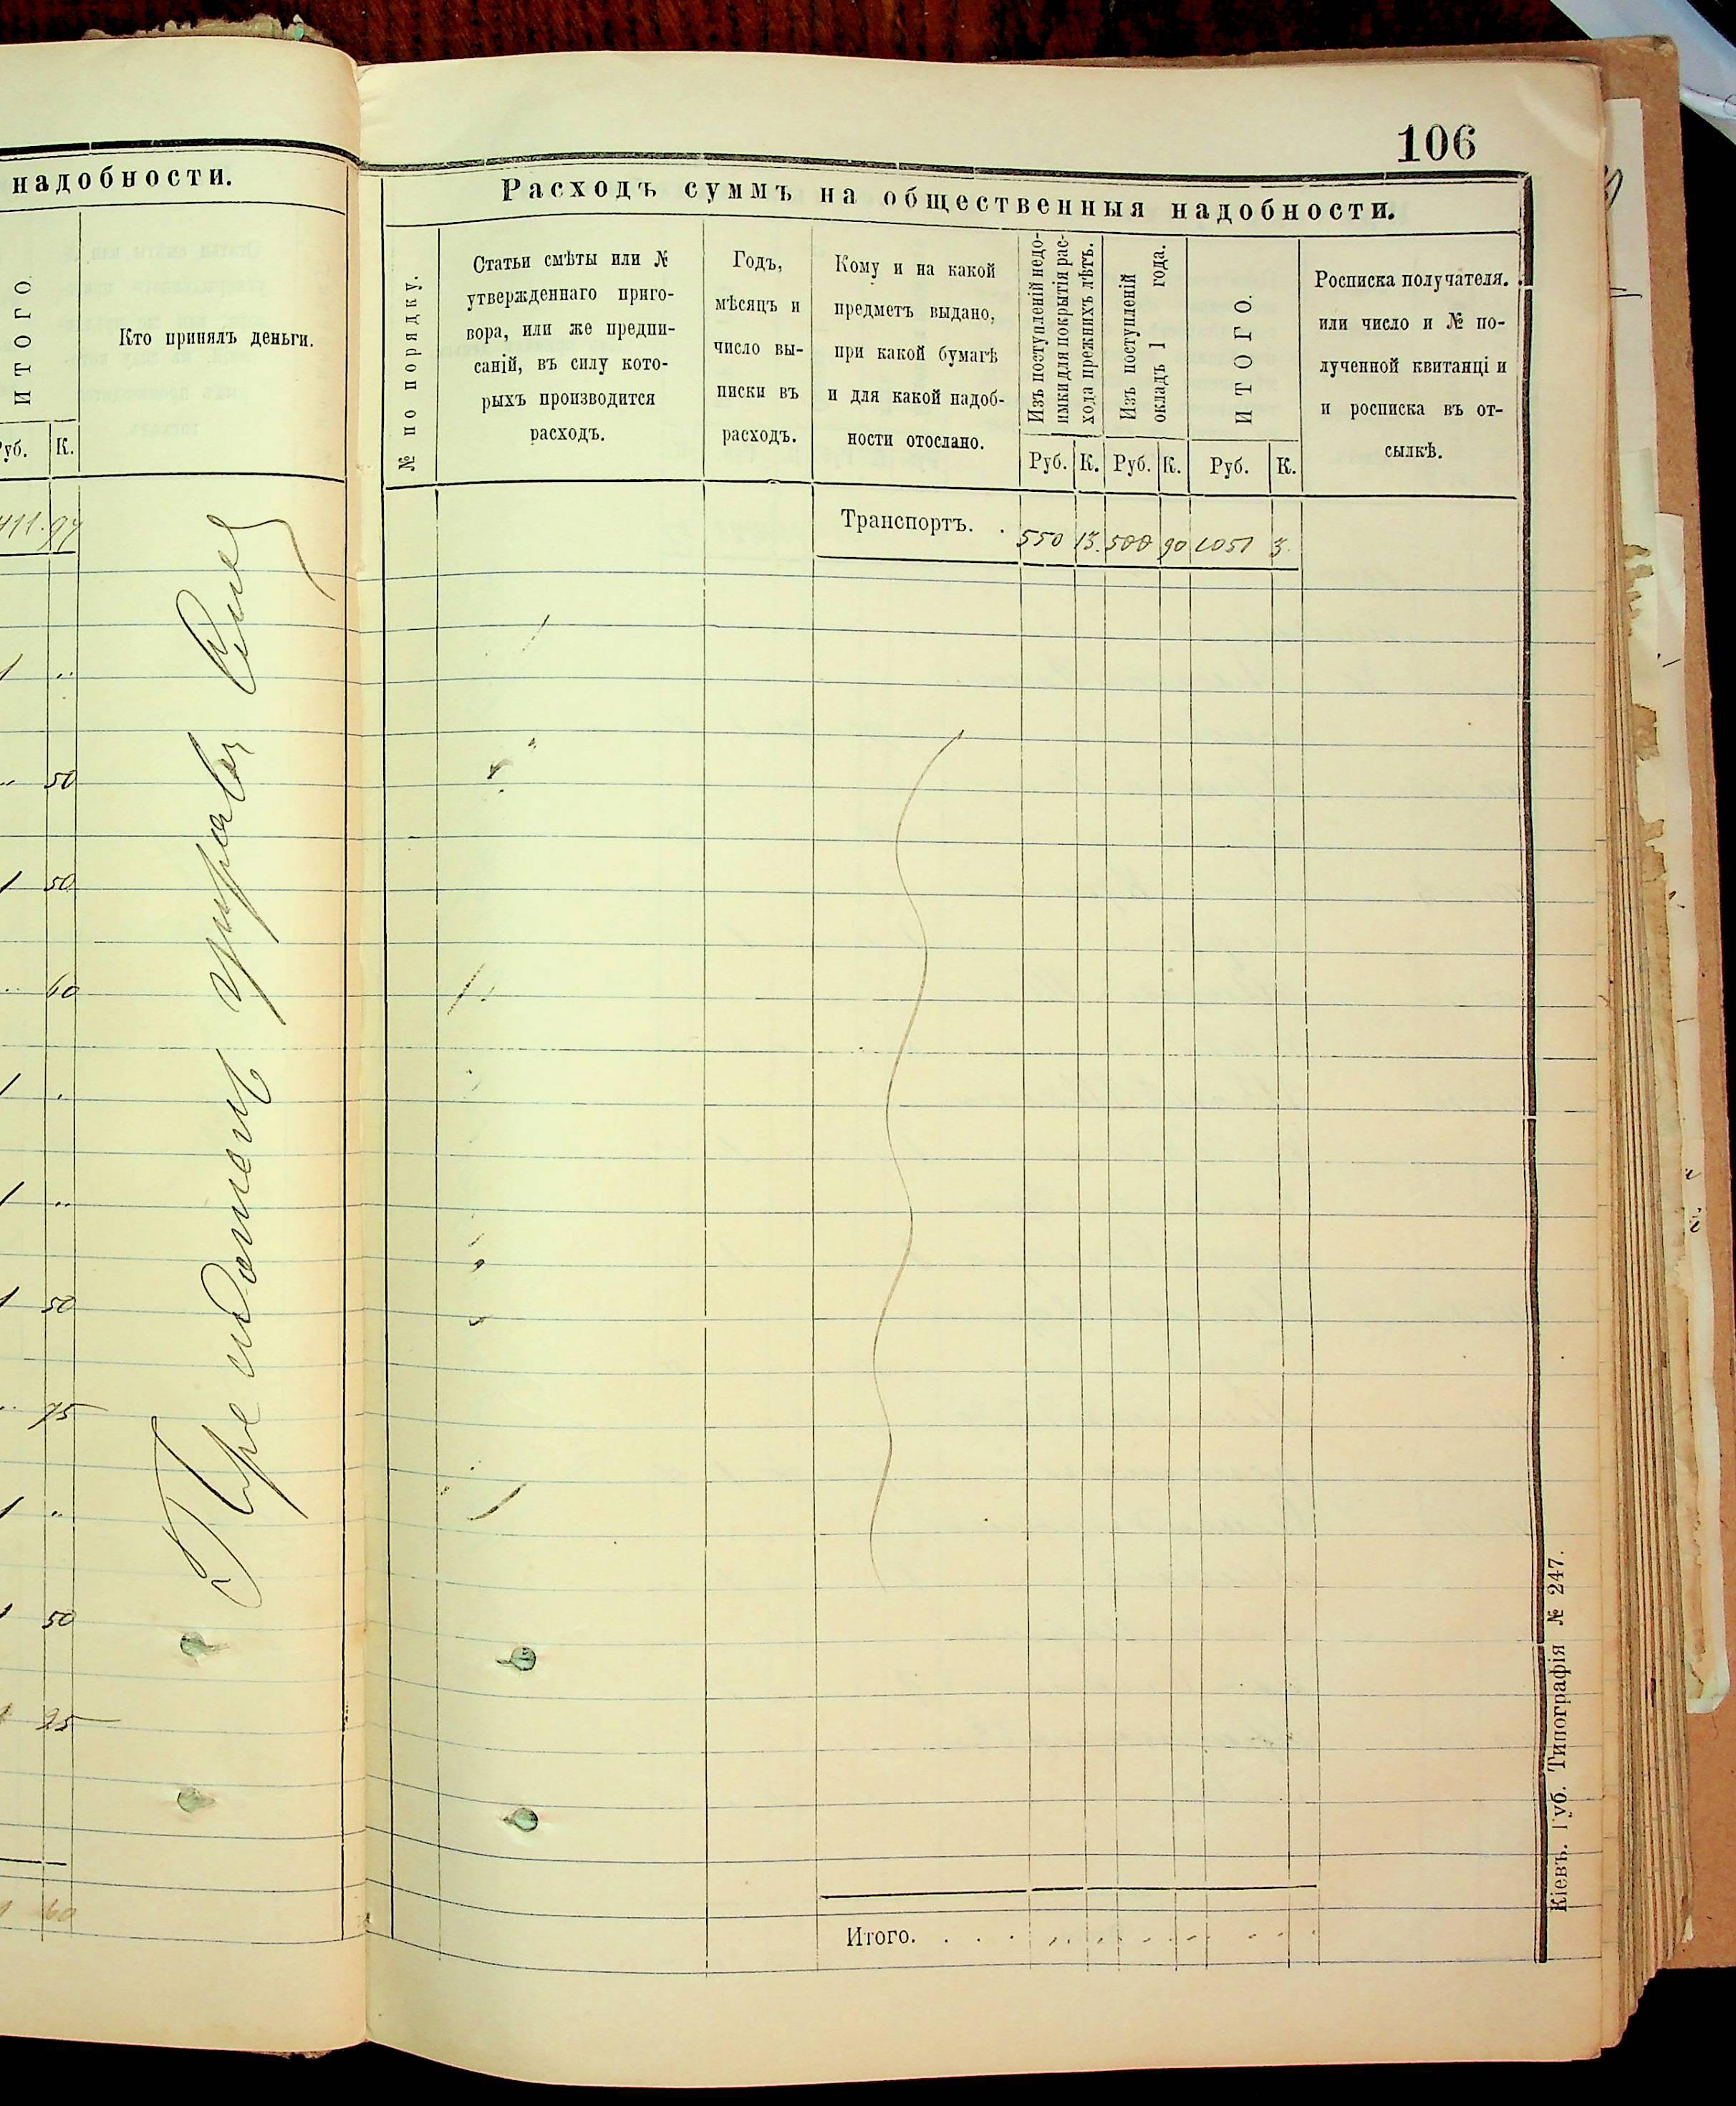 надобности.
ИТОГО.
Кто принялъ деньги.
Руб. К.
411. 94
1 ..
.. 50
1 50
.. 60
1 .
1 ..
1 50
.. 75
1 ..
1 50
25
60
106
Расходъ суммъ на общественныя надобности.
№ по порядку.
Статьи смѣты или №
утвержденнаго приго-
вора, или же предпи-
саній, въ силу кото-
рыхъ производится
расходъ.
Годъ,
мѣсяцъ и
число вы-
писки въ
расходъ.
Кому и на какой
предметъ выдано,
при какой бумагѣ
и для какой надоб-
ности отослано.
Изъ поступленій недо-
имки для покрытія рас-
хода прежнихъ лѣтъ.
Изъ поступленій
окладъ 1 года.
ИТОГО.
Росписка получателя.
или число и № по-
лученной квитанціи
и росписка въ от-
сылкѣ.
Руб. К. Руб. К. Руб. К.
Транспортъ. . 550 13. 500 90 1051 3.
Итого. . . .
Кіевъ. Губ. Типографія № 247.